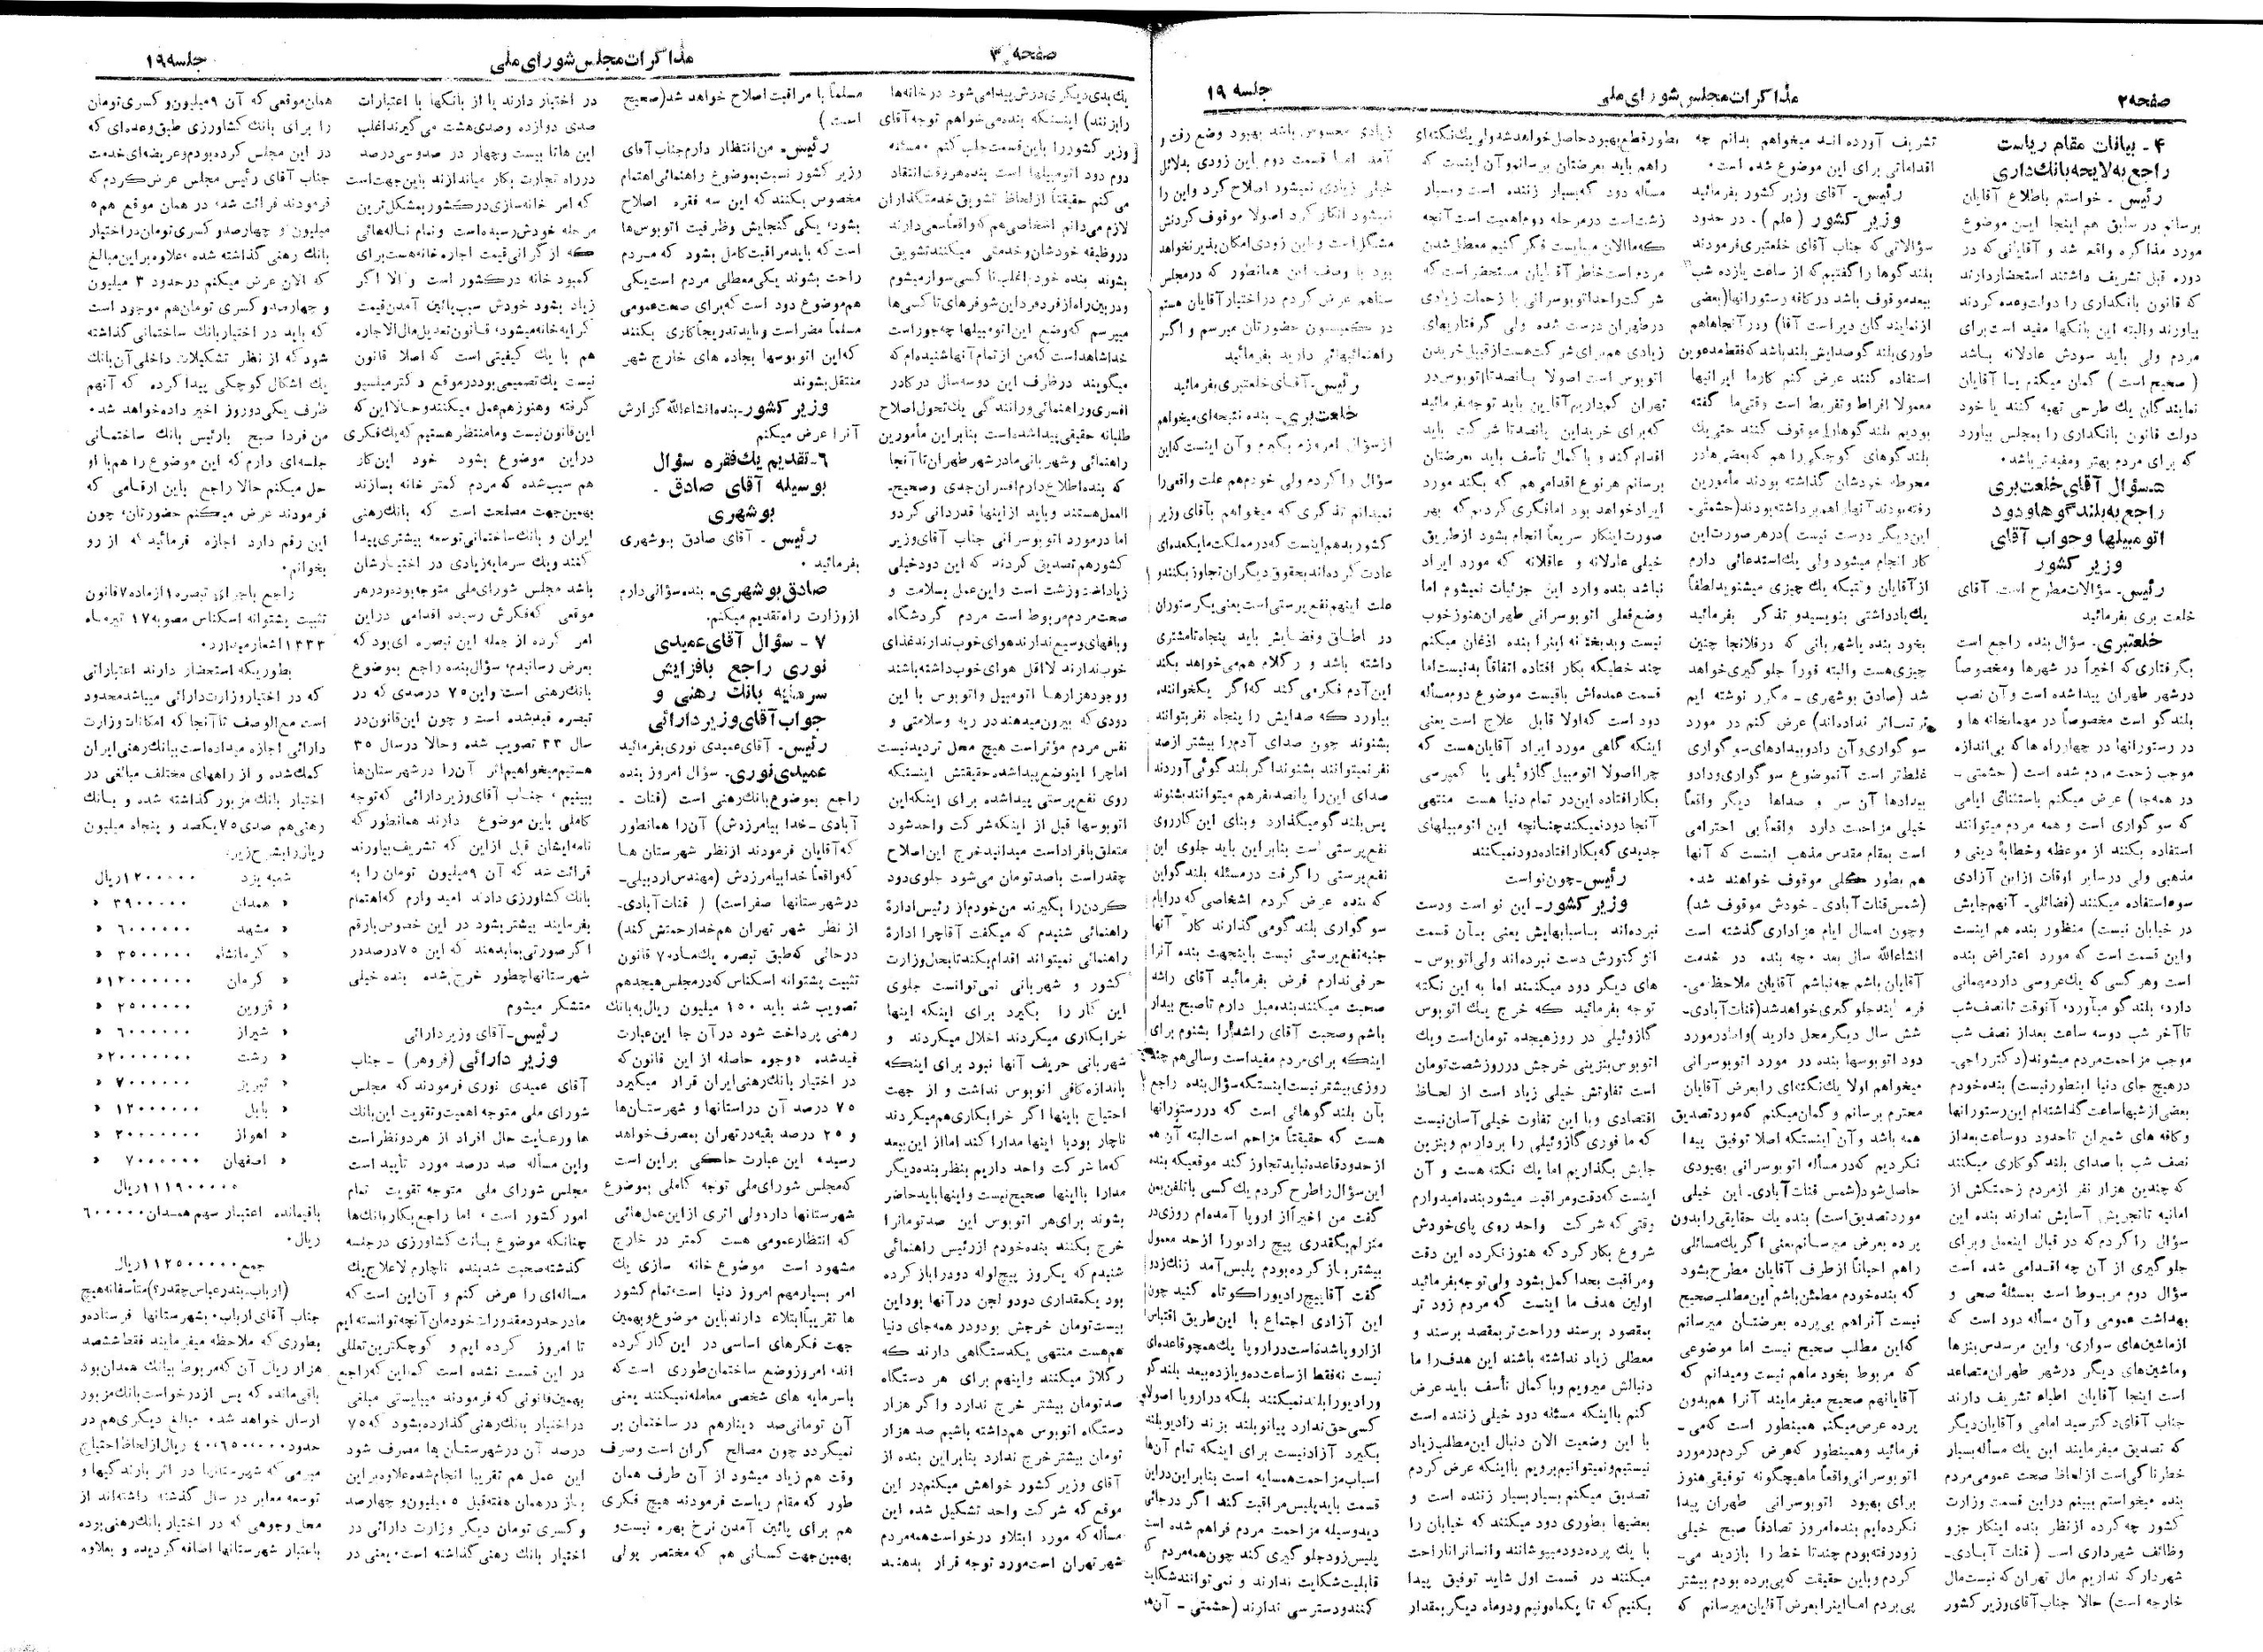 صفحه ۲
مذاکرات مجلس شورای ملی
جلسه ۱۹
۴ - بیانات مقام ریاست
راجع به لایحه بانک داری
رئیس - خواستم باطلاع آقایان
برسانم در سابق هم اینجا این موضوع
مورد مذاکره واقع شد و آقایانی که در
دوره قبل تشریف داشتند استحضار دارند
که قانون بانکداری را دولت وعده کردند
بیاورند والبته این بانکها مفید است برای
مردم ولی باید سودش عادلانه باشد
(صحیح است) گمان میکنم یا آقایان
نمایندگان یک طرحی تهیه کنند یا خود
دولت قانون بانکداری را بمجلس بیاورد
که برای مردم بهتر و مفیدتر باشد.
۵ - سؤال آقای خلعت بری
راجع به بلندگوها و دود
اتومبیلها و جواب آقای
وزیر کشور
رئیس - سؤالات مطرح است. آقای
خلعت بری بفرمائید
خلعتبری. سؤال بنده راجع است
بگرفتاری که اخیراً در شهرها و مخصوصاً
در شهر طهران پیدا شده است و آن نصب
بلندگو است مخصوصاً در مهمانخانه ها و
در رستورانها در چهار راه ها که بی اندازه
موجب زحمت مردم شده است (حشمتی -
در همه جا) عرض میکنم باستثنای ایامی
که سوگواری است و همه مردم میتوانند
استفاده بکنند از موعظه و خطابهٔ دینی و
مذهبی ولی در سایر اوقات از این آزادی
سوء استفاده میکنند (فضائلی - آنهم جایش
در خیابان نیست) منظور بنده هم اینست
و این قسمت است که مورد اعتراض بنده
است و هر کسی که یک عروسی دارد مهمانی
دارد، بلندگو میآورد، آنوقت تا نصف شب
تا آخر شب دو سه ساعت بعد از نصف شب
موجب مزاحمت مردم میشوند (دکتر راجی -
در هیچ جای دنیا اینطور نیست) بنده خودم
بعضی از شبها ساعت گذاشته ام این رستورانها
و کافه های شمیران تا حدود دو ساعت بعد از
نصف شب با صدای بلند گو کاری میکنند
که چندین هزار نفر از مردم زحمتکش از
امانیه تا تجریش آسایش ندارند بنده این
سؤال را کردم که در قبال اینعمل و برای
جلوگیری از آن چه اقدامی شده است
سؤال دوم مربوط است بمسئلهٔ صحی و
بهداشت عمومی و آن مسأله دود است که
از ماشین های سواری، و این مرسدس بنزها
و ماشین های دیگر در شهر طهران متصاعد
است اینجا آقایان اطباء تشریف دارند
جناب آقای دکتر سید امامی و آقایان دیگر
که تصدیق میفرمایند این یک مسأله بسیار
خطرناکی است از لحاظ صحت عمومی مردم
بنده میخواستم ببینم در این قسمت وزارت
کشور چه کرده از نظر بنده اینکار جزو
وظائف شهرداری است (قنات آبادی -
شهردار که نداریم مال تهران که نیست مال
خارجه است) حالا جناب آقای وزیر کشور
تشریف آورده اند میخواهم بدانم چه
اقداماتی برای این موضوع شده است.
رئیس. آقای وزیر کشور بفرمائید
وزیر کشور (علم). در حدود
سؤالاتی که جناب آقای خلعتبری فرمودند
بلندگوها را گفتیم که از ساعت یازده شب
ببعد موقوف باشد در کافه رستورانها (بعضی
از نمایندگان دیر است آقا) و در آنجاها هم
طوری بلندگو صدایش بلند باشد که فقط مدعوین
استفاده کنند عرض کنم کار ما ایرانیها
معمولا افراط و تفریط است وقتی ما گفته
بودیم بلند گوها را موقوف کنند حتی یک
بلند گوهای کوچکی را هم که بعضی ها در
محوطه خودشان گذاشته بودند مأمورین
رفته بودند آنها را هم برداشته بودند (حشمتی-
این دیگر درست نیست) در هر صورت این
کار انجام میشود ولی یک استدعائی دارم
از آقایان وقتیکه یک چیزی میشنوید لطفاً
یک یادداشتی بنویسید و تذکر بفرمائید
بخود بنده یا شهربانی که در فلانجا چنین
چیزی هست والبته فوراً جلوگیری خواهد
شد (صادق بوشهری - مکرر نوشته ایم
ترتیب اثر نداده اند) عرض کنم در مورد
سوگواری و آن داد و بیدادهای سوگواری
غلط تر است آنموضوع سوگواری و داد و
بیدادها آن سر و صداها دیگر واقعاً
خیلی مزاحمت دارد واقعاً بی احترامی
است بمقام مقدس مذهب اینست که آنها
هم بطور کلی موقوف خواهند شد.
(شمس قنات آبادی - خودش موقوف شد)
و چون امسال ایام عزاداری گذشته است
انشاءالله سال بعد. چه بنده در خدمت
آقایان باشم چه نباشم آقایان ملاحظه می-
فرمایند جلوگیری خواهد شد (قنات آبادی-
شش سال دیگر محل دارید) و اما در مورد
دود اتوبوسها بنده در مورد اتوبوسرانی
میخواهم اولا یک نکته ای را بعرض آقایان
محترم برسانم و گمان میکنم که مورد تصدیق
همه باشد و آن اینستکه اصلا توفیق پیدا
نکردیم که در مسأله اتوبوسرانی بهبودی
حاصل شود (شمس قنات آبادی- این خیلی
مورد تصدیق است) بنده یک حقایقی را بدون
پرده بعرض میرسانم یعنی اگر یک مسائلی
راهم احیاناً از طرف آقایان مطرح بشود
که بنده خودم مطمئن باشم این مطلب صحیح
نیست آنرا هم بی پرده بعرضتان میرسانم
که این مطلب صحیح نیست اما موضوعی
که مربوط بخود ما هم نیست و میدانم که
آقایانهم صحیح میفرمایند آنرا هم بدون
پرده عرض میکنم همینطور است که می-
فرمائید و همینطور که عرض کردم در مورد
اتوبوسرانی واقعاً ما هیچگونه توفیقی هنوز
برای بهبود اتوبوسرانی طهران پیدا
نکرده ایم بنده امروز تصادفاً صبح خیلی
زود رفته بودم چند تا خط را بازدید می-
کردم و باین حقیقت که پی برده بودم بیشتر
پی بردم اما اینرا بعرض آقایان میرسانم که
بطور قطع بهبود حاصل خواهد شد ولی یک نکته ای
راهم باید بعرضتان برسانم و آن اینست که
مسأله دود که بسیار زننده است و بسیار
زشت است در مرحله دوم اهمیت است آنچه
که ما الان میبایست فکر کنیم معطل شدن
مردم است خاطر آقایان مستحضر است که
شرکت واحد اتوبوسرانی با زحمات زیادی
در طهران درست شده ولی گرفتاریهای
زیادی هم برای شرکت هست از قبیل خریدن
اتوبوس است اصولا پانصد تا اتوبوس در
تهران کم داریم آقایان باید توجه بفرمائید
که برای خرید این پانصد تا شرکت باید
اقدام کند و با کمال تأسف باید بعرضتان
برسانم هر نوع اقدامی هم که بکند مورد
ایراد خواهد بود اما فکری کردیم که بهر
صورت اینکار سریعاً انجام بشود از طریق
خیلی عادلانه و عاقلانه که مورد ایراد
نباشد بنده وارد این جزئیات نمیشوم اما
وضع فعلی اتوبوسرانی طهران هنوز خوب
نیست و بدبختانه اینرا بنده اذعان میکنم
چند خطیکه بکار افتاده اتفاقاً بد نیست اما
قسمت عمده اش باقیست موضوع دو مسأله
دود است که اولا قابل علاج است یعنی
اینکه گاهی مورد ایراد آقایان هست که
چرا اصولا اتومبیل گازوئیلی یا کمپرسی
بکار افتاده این در تمام دنیا هست منتهی
آنجا دود نمیکند چنانچه این اتومبیلهای
جدیدی که بکار افتاده دود نمیکنند
رئیس - چون نو است
وزیر کشور - این نو است و دست
نبرده اند باسبابهایش یعنی بآن قسمت
انژکتورش دست نبرده اند ولی اتوبوس -
های دیگر دود میکنند اما به این نکته
توجه بفرمائید که خرج یک اتوبوس
گازوئیلی در روز هیجده تومان است و یک
اتوبوس بنزینی خرجش در روز شصت تومان
است تفاوتش خیلی زیاد است از لحاظ
اقتصادی و با این تفاوت خیلی آسان نیست
که ما فوری گازوئیلی را برداریم و بنزین
جایش بگذاریم اما یک نکته هست و آن
اینست که دقت و مراقبت میشود بنده امیدوارم
وقتی که شرکت واحد روی پای خودش
شروع بکار کرد که هنوز نکرده این دقت
و مراقبت بحد اکمل بشود ولی توجه بفرمائید
اولین هدف ما اینست که مردم زود تر
بمقصود برسند و راحت تر بمقصد برسند و
معطلی زیاد نداشته باشند این هدف را ما
دنبالش میرویم و با کمال تأسف باید عرض
کنم با اینکه مسئله دود خیلی زننده است
با این وضعیت الان دنبال این مطلب زیاد
نیستیم و نمیتوانیم برویم با اینکه عرض کردم
تصدیق میکنم بسیار بسیار زننده است و
بعضیها بطوری دود میکنند که خیابان را
با یک پرده دود میپوشانند و انسانرا ناراحت
میکنند در قسمت اول شاید توفیق پیدا
بکنیم که تا یکماه و نیم و دو ماه دیگر بمقدار
زیادی محسوس باشد بهبود وضع رفت و
آمد اما قسمت دوم باین زودی بدلائل
خیلی زیادی نمیشود اصلاح کرد و این را
نمیشود انکار کرد اصولا موقوف کردنش
مشکل است و باین زودی امکان پذیر نخواهد
بود با وصف این همانطور که در مجلس
سنا هم عرض کردم در اختیار آقایان هستم
در کمیسیون حضورتان میرسم و اگر
راهنمائیهائی دارید بفرمائید
رئیس - آقای خلعتبری بفرمائید
خلعتبری - بنده نتیجه ای میخواهم
از سؤال امروزم بگیرم و آن اینست که این
سؤال را کردم ولی خودم هم علت واقعی را
نمیدانم تذکری که میخواهم بآقای وزیر
کشور بدهم اینست که در مملکت ما یکعده ای
عادت کرده اند بحقوق دیگران تجاوز بکنند و
علت اینهم نفع پرستی است یعنی یک رستوران
در اطاق و فضایش باید پنجاه تا مشتری
داشته باشد و رکلام هم می خواهد بکند
این آدم فکر می کند که اگر یک خواننده
بیاورد که صدایش را پنجاه نفر بتوانند
بشنوند چون صدای آدم را بیشتر از صد
نفر نمیتوانند بشنوند اگر بلند گوئی آوردند
صدای این را پانصد نفر هم میتوانند بشنوند
پس بلند گو میگذارد و بنای این کار روی
نفع پرستی است بنابراین باید جلوی این
نفع پرستی را گرفت در مسئله بلند گو این
که بنده عرض کردم اشخاصی که در ایام
سوگواری بلند گو می گذارند کار آنها
جنبه نفع پرستی نیست باینجهت بنده آنرا
حرفی ندارم فرض بفرمائید آقای راشد
صحبت میکنند بنده میل دارم تا صبح بیدار
باشم و صحبت آقای راشد را بشنوم برای
اینکه برای مردم مفید است و سالی هم چند
روزی بیشتر نیست اینستکه سؤال بنده راجع
بآن بلند گوهائی است که در رستورانها
هست که حقیقتاً مزاحم است البته آن هم
از حدود قاعده نباید تجاوز کند موقعیکه بنده
این سؤال را طرح کردم یک کسی با تلفن بمن
گفت من اخیراً از اروپا آمده ام روزی در
منزلم بقدری پیچ رادیو را از حد معمول
بیشتر باز کرده بودم پلیس آمد زنگ زد و
گفت آقا پیچ رادیو را کوتاه کنید چون
این آزادی اجتماع با این طریق اقتباس
از اروپا شده است در اروپا یک همچو قاعده ای
نیست نه فقط از ساعت ده و یازده ببعد بلند گو
و رادیو را بلند نمیکنند بلکه در اروپا اصولا
کسی حق ندارد پیانو بلند بزند رادیو بلند
بگیرد آزاد نیست برای اینکه تمام آن ها
اسباب مزاحمت همسایه است بنابراین در این
قسمت باید پلیس مراقبت کند اگر در جائی
دید وسیله مزاحمت مردم فراهم شده است
پلیس زود جلوگیری کند چون همه مردم که
قابلیت شکایت ندارند و نمی توانند شکایت
کنند و دسترسی ندارند (حشمتی - آن هم
صفحه ۳
مذاکرات مجلس شورای ملی
جلسه ۱۹
یک بدی دیگری درش پیدا می شود در خانه ها
را بزنند) اینستکه بنده می خواهم توجه آقای
وزیر کشور را باین قسمت جلب کنم. مسئله
دوم دود اتومبیلها است بنده هر وقت انتقاد
می کنم حقیقتاً از لحاظ تشویق خدمتگذاران
لازم می دانم اشخاصی هم که واقعاً سعی دارند
در وظیفه خودشان و خدمتی میکنند تشویق
بشوند بنده خودم اغلب تا کسی سوار میشوم
و در بین راه از فرد فرد این شوفرهای تاکسی ها
میپرسم که وضع این اتومبیلها چه جور است
خدا شاهد است که من از تمام آنها شنیده ام که
میگویند در ظرف این دو سه سال در کادر
افسری و راهنمائی و رانندگی یک تحول اصلاح
طلبانه حقیقی پیدا شده است بنابراین مأمورین
راهنمائی و شهربانی ما در شهر طهران تا آنجا
که بنده اطلاع دارم افسران جدی و صحیح-
العمل هستند و باید از اینها قدردانی کرد و
اما در مورد اتوبوسرانی جناب آقای وزیر
کشور هم تصدیق کردند که این دود خیلی
زیاد است و زشت است و این عمل بسلامت و
صحت مردم مربوط است مردم گردشگاه
و باغهای وسیع ندارند هوای خوب ندارند غذای
خوب ندارند لااقل هوای خوب داشته باشند
و وجود هزارها اتومبیل و اتوبوس با این
دودی که بیرون میدهند در ریه و سلامتی و
نفس مردم مؤثر است هیچ محل تردید نیست
اما چرا اینوضع پیدا شده حقیقتش اینستکه
روی نفع پرستی پیدا شده برای اینکه این
اتوبوسها قبل از اینکه شرکت واحد شود
متعلق بافراد است میدانید خرج این اصلاح
چقدر است با صد تومان می شود جلوی دود
کردن را بگیرند من خودم از رئیس ادارهٔ
راهنمائی شنیدم که میگفت آقا چرا ادارهٔ
راهنمائی نمیتواند اقدام بکند تا بحال وزارت
کشور و شهربانی نمی توانست جلوی
این کار را بگیرد برای اینکه اینها
خرابکاری میکردند اخلال میکردند و
شهربانی حریف آنها نبود برای اینکه
باندازه کافی اتوبوس نداشت و از جهت
احتیاج باینها اگر خرابکاری هم میکردند
ناچار بود با اینها مدارا کند اما از این ببعد
که ما شرکت واحد داریم بنظر بنده دیگر
مدارا با اینها صحیح نیست و اینها باید حاضر
بشوند برای هر اتوبوس این صد تومانرا
خرج بکنند بنده خودم از رئیس راهنمائی
شنیدم که یکروز پیچ لوله دود را باز کرده
بود یکمقداری دود و لجن در آنها بود این
بیست تومان خرجش بود در همه جای دنیا
هم هست منتهی یک دستگاهی دارند که
رگلاژ میکنند و اینهم برای هر دستگاه
صد تومان بیشتر خرج ندارد و اگر هزار
دستگاه اتوبوس هم داشته باشیم صد هزار
تومان بیشتر خرج ندارد بنابراین بنده از
آقای وزیر کشور خواهش میکنم در این
موقع که شرکت واحد تشکیل شده این
مسأله که مورد ابتلاء و درخواست همه مردم
شهر تهران است مورد توجه قرار بدهند
مسلماً با مراقبت اصلاح خواهد شد (صحیح
است)
رئیس. من انتظار دارم جناب آقای
وزیر کشور نسبت بموضوع راهنمائی اهتمام
مخصوص بکنند که این سه فقره اصلاح
بشود، یکی گنجایش و ظرفیت اتوبوس ها
است که باید مراقبت کامل بشود که مردم
راحت بشوند یکی معطلی مردم است یکی
هم موضوع دود است که برای صحت عمومی
مسلماً مضر است و باید تدریجاً کاری بکنند
که این اتوبوسها بجاده های خارج شهر
منتقل بشوند
وزیر کشور - بنده انشاءالله گزارش
آنرا عرض میکنم
۶ - تقدیم یک فقره سؤال
بوسیله آقای صادق -
بوشهری
رئیس - آقای صادق بوشهری
بفرمائید.
صادق بوشهری. بنده سؤالی دارم
از وزارت راه تقدیم میکنم.
۷ - سؤال آقای عمیدی
نوری راجع بافزایش
سرمایه بانک رهنی و
جواب آقای وزیر دارائی
رئیس - آقای عمیدی نوری بفرمائید
عمیدی نوری. سؤال امروز بنده
راجع بموضوع بانک رهنی است (قنات -
آبادی - خدا بیامرزدش) آن را همانطور
که آقایان فرمودند از نظر شهرستان ها
که واقعاً خدا بیامرزدش (مهندس اردبیلی-
در شهرستانها صفر است) (قنات آبادی-
از نظر شهر تهران هم خدا رحمتش کند)
در حالی که طبق تبصره یک ماده ۷ قانون
تثبیت پشتوانه اسکناس که در مجلس هیجدهم
تصویب شد باید ۱۵۰ میلیون ریال به بانک
رهنی پرداخت شود در آن جا این عبارت
قید شده «وجوه حاصله از این قانون که
در اختیار بانک رهنی ایران قرار میگیرد
۷۵ درصد آن در استانها و شهرستان ها
و ۲۵ درصد بقیه در تهران بمصرف خواهد
رسید» این عبارت حاکی براین است
که مجلس شورای ملی توجه کاملی بموضوع
شهرستانها دارد ولی اثری از این عمل هائی
که انتظار عمومی هست کمتر در خارج
مشهود است موضوع خانه سازی یک
امر بسیار مهم امروز دنیا است، تمام کشور
ها تقریباً ابتلاء دارند باین موضوع و بهمین
جهت فکرهای اساسی در این کار کرده
اند، امروز وضع ساختمان طوری است که
با سرمایه های شخصی معامله نمیکنند یعنی
آن تومانی صد دینار هم در ساختمان بر
نمیگردد چون مصالح گران است و صرف
وقت هم زیاد میشود از آن طرف همان
طور که مقام ریاست فرمودند هیچ فکری
هم برای پائین آمدن نرخ بهره نیست و
بهمین جهت کسانی هم که مختصر پولی
در اختیار دارند یا از بانکها با اعتبارات
صدی دوازده و صدی هشت می گیرند اغلب
این ها تا بیست و چهار در صد و سی درصد
در راه تجارت بکار میاندازند باین جهت است
که امر خانه سازی در کشور بمشکل ترین
مرحله خودش رسیده است و تمام ناله هائی
که از گرانی قیمت اجاره خانه هست برای
کمبود خانه در کشور است و الا اگر
زیاد بشود خودش سبب پائین آمدن قیمت
کرایه خانه میشود، قانون تعدیل مال الاجاره
هم با یک کیفیتی است که اصلا قانون
نیست یک تصمیمی بود در موقع دکتر میلسپو
گرفته و هنوز هم عمل میکنند و حالا این که
این قانون نیست و ما منتظر هستیم که یک فکری
در این موضوع بشود خود این کار
هم سبب شده که مردم کمتر خانه بسازند
بهمین جهت مصلحت است که بانک رهنی
ایران و بانک ساختمانی توسعه بیشتری پیدا
کنند و یک سرمایه زیادی در اختیارشان
باشد مجلس شورای ملی متوجه بوده و در هر
موقعی که فکرش رسیده اقدامی در این
امر کرده از جمله این تبصره ای بود که
بعرض رسانیدم، سؤال بنده راجع بموضوع
بانک رهنی است و این ۷۵ درصدی که در
تبصره قید شده است و چون این قانون در
سال ۳۳ تصویب شده و حالا در سال ۳۵
هستیم میخواهیم اثر آن را در شهرستان ها
ببینیم، جناب آقای وزیر دارائی که توجه
کاملی باین موضوع دارند همانطور که
نامه ایشان قبل از این که تشریف بیاورند
قرائت شد که آن ۹ میلیون تومان را به
بانک کشاورزی دادند امیدوارم که اهتمام
بفرمایند بیشتر بشود در این خصوص با رقم
اگر صورتی بما بدهند که این ۷۵ درصد در
شهرستانها چطور خرج شده بنده خیلی
متشکر میشوم
رئیس - آقای وزیر دارائی
وزیر دارائی (فروهر) - جناب
آقای عمیدی نوری فرمودند که مجلس
شورای ملی متوجه اهمیت و تقویت این بانک
ها و رعایت حال افراد از هر دو نظر است
و این مسأله صد درصد مورد تأیید است
مجلس شورای ملی متوجه تقویت تمام
امور کشور است، اما راجع بکار بانک ها
چنانکه موضوع بانک کشاورزی در جلسه
گذشته صحبت شد بنده ناچارم لاعلاج یک
مسأله ای را عرض کنم و آن این است که
ما در حدود مقدورات خودمان آنچه توانسته ایم
تا امروز کرده ایم و کوچکترین تعللی
در این قسمت نشده است کما این که راجع
بهمین قانونی که فرمودند میبایستی مبلغی
در اختیار بانک رهنی گذارده بشود که ۷۵
درصد آن در شهرستان ها مصرف شود
این عمل هم تقریباً انجام شده علاوه بر این
باز در همان هفته قبل ۵ میلیون و چهارصد
و کسری تومان دیگر وزارت دارائی در
اختیار بانک رهنی گذاشته است. یعنی در
همان موقعی که آن ۹ میلیون و کسری تومان
را برای بانک کشاورزی طبق وعده ای که
در این مجلس کرده بودم و عریضه ای خدمت
جناب آقای رئیس مجلس عرض کردم که
فرمودند قرائت شد، در همان موقع هم ۵
میلیون و چهارصد و کسری تومان در اختیار
بانک رهنی گذاشته شده. علاوه بر این مبالغ
که الان عرض میکنم در حدود ۳ میلیون
و چهارصد و کسری تومان هم موجود است
که باید در اختیار بانک ساختمانی گذاشته
شود که از نظر تشکیلات داخلی آن بانک
یک اشکال کوچکی پیدا کرده که آنهم
ظرف یکی دو روز اخیر داده خواهد شد.
من فردا صبح با رئیس بانک ساختمانی
جلسه ای دارم که این موضوع را هم با او
حل میکنم حالا راجع باین ارقامی که
فرمودند عرض میکنم حضورتان، چون
این رقم دارد اجازه فرمائید که از رو
بخوانم.
راجع باجرای تبصره ۱ از ماده ۷ قانون
تثبیت پشتوانه اسکناس مصوبه ۱۷ تیرماه
۱۳۳۳ اشعار میدارد.
بطوریکه استحضار دارند اعتباراتی
که در اختیار وزارت دارائی میباشد محدود
است مع الوصف تا آنجا که امکانات وزارت
دارائی اجازه میداده است ببانک رهنی ایران
کمک شده و از راههای مختلف مبالغی در
اختیار بانک مزبور گذاشته شده و بانک
رهنی هم صدی ۷۵ یکصد و پنجاه میلیون
ریال را بشرح زیر:
شعبه یزد ۱۲۰۰۰۰۰ ریال
« همدان ۳۹۰۰۰۰۰ «
« مشهد ۶۰۰۰۰۰۰ «
« کرمانشاه ۳۵۰۰۰۰۰ «
« کرمان ۱۲۰۰۰۰۰۰ «
« قزوین ۲۵۰۰۰۰۰ «
« شیراز ۶۰۰۰۰۰۰ «
« رشت ۲۰۰۰۰۰۰۰ «
« تبریز ۷۰۰۰۰۰۰ «
« بابل ۱۲۰۰۰۰۰۰ «
« اهواز ۲۰۰۰۰۰۰۰ «
« اصفهان ۷۰۰۰۰۰۰ «
۱۱۱۹۰۰۰۰۰ ریال
باقیمانده اعتبار سهم همدان ۶۰۰۰۰۰
ریال.
جمع ۱۱۲۵۰۰۰۰۰ ریال
(ارباب. بندر عباس چقدر؟) متأسفانه هیچ
جناب آقای ارباب. بشهرستانها فرستاده و
بطوری که ملاحظه میفرمایند فقط ششصد
هزار ریال آن که مربوط ببانک همدان بود
باقی مانده که پس از درخواست بانک مزبور
ارسال خواهد شد. مبالغ دیگری هم در
حدود ۴۰۰۶۵۰۰۰۰ ریال از لحاظ احتیاج
مبرمی که شهرستانها در اثر بارندگیها و
توسعه معابر در سال گذشته داشته اند از
محل وجوهی که در اختیار بانک رهنی بوده
باعتبار شهرستانها اضافه گردیده و بعلاوه